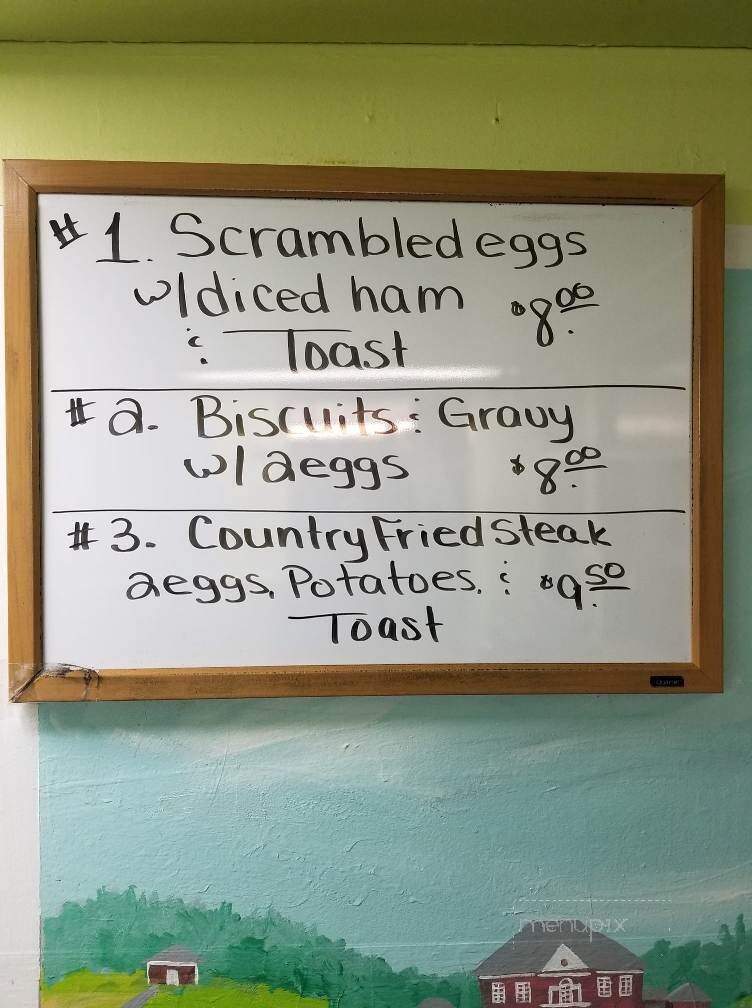 #1. Scrambled eggs
w/diced ham $8.00
& Toast
#2. Biscuits & Gravy
w/2eggs $8.00
#3. Country Fried Steak
2eggs, Potatoes, & $9.50
Toast
menupix